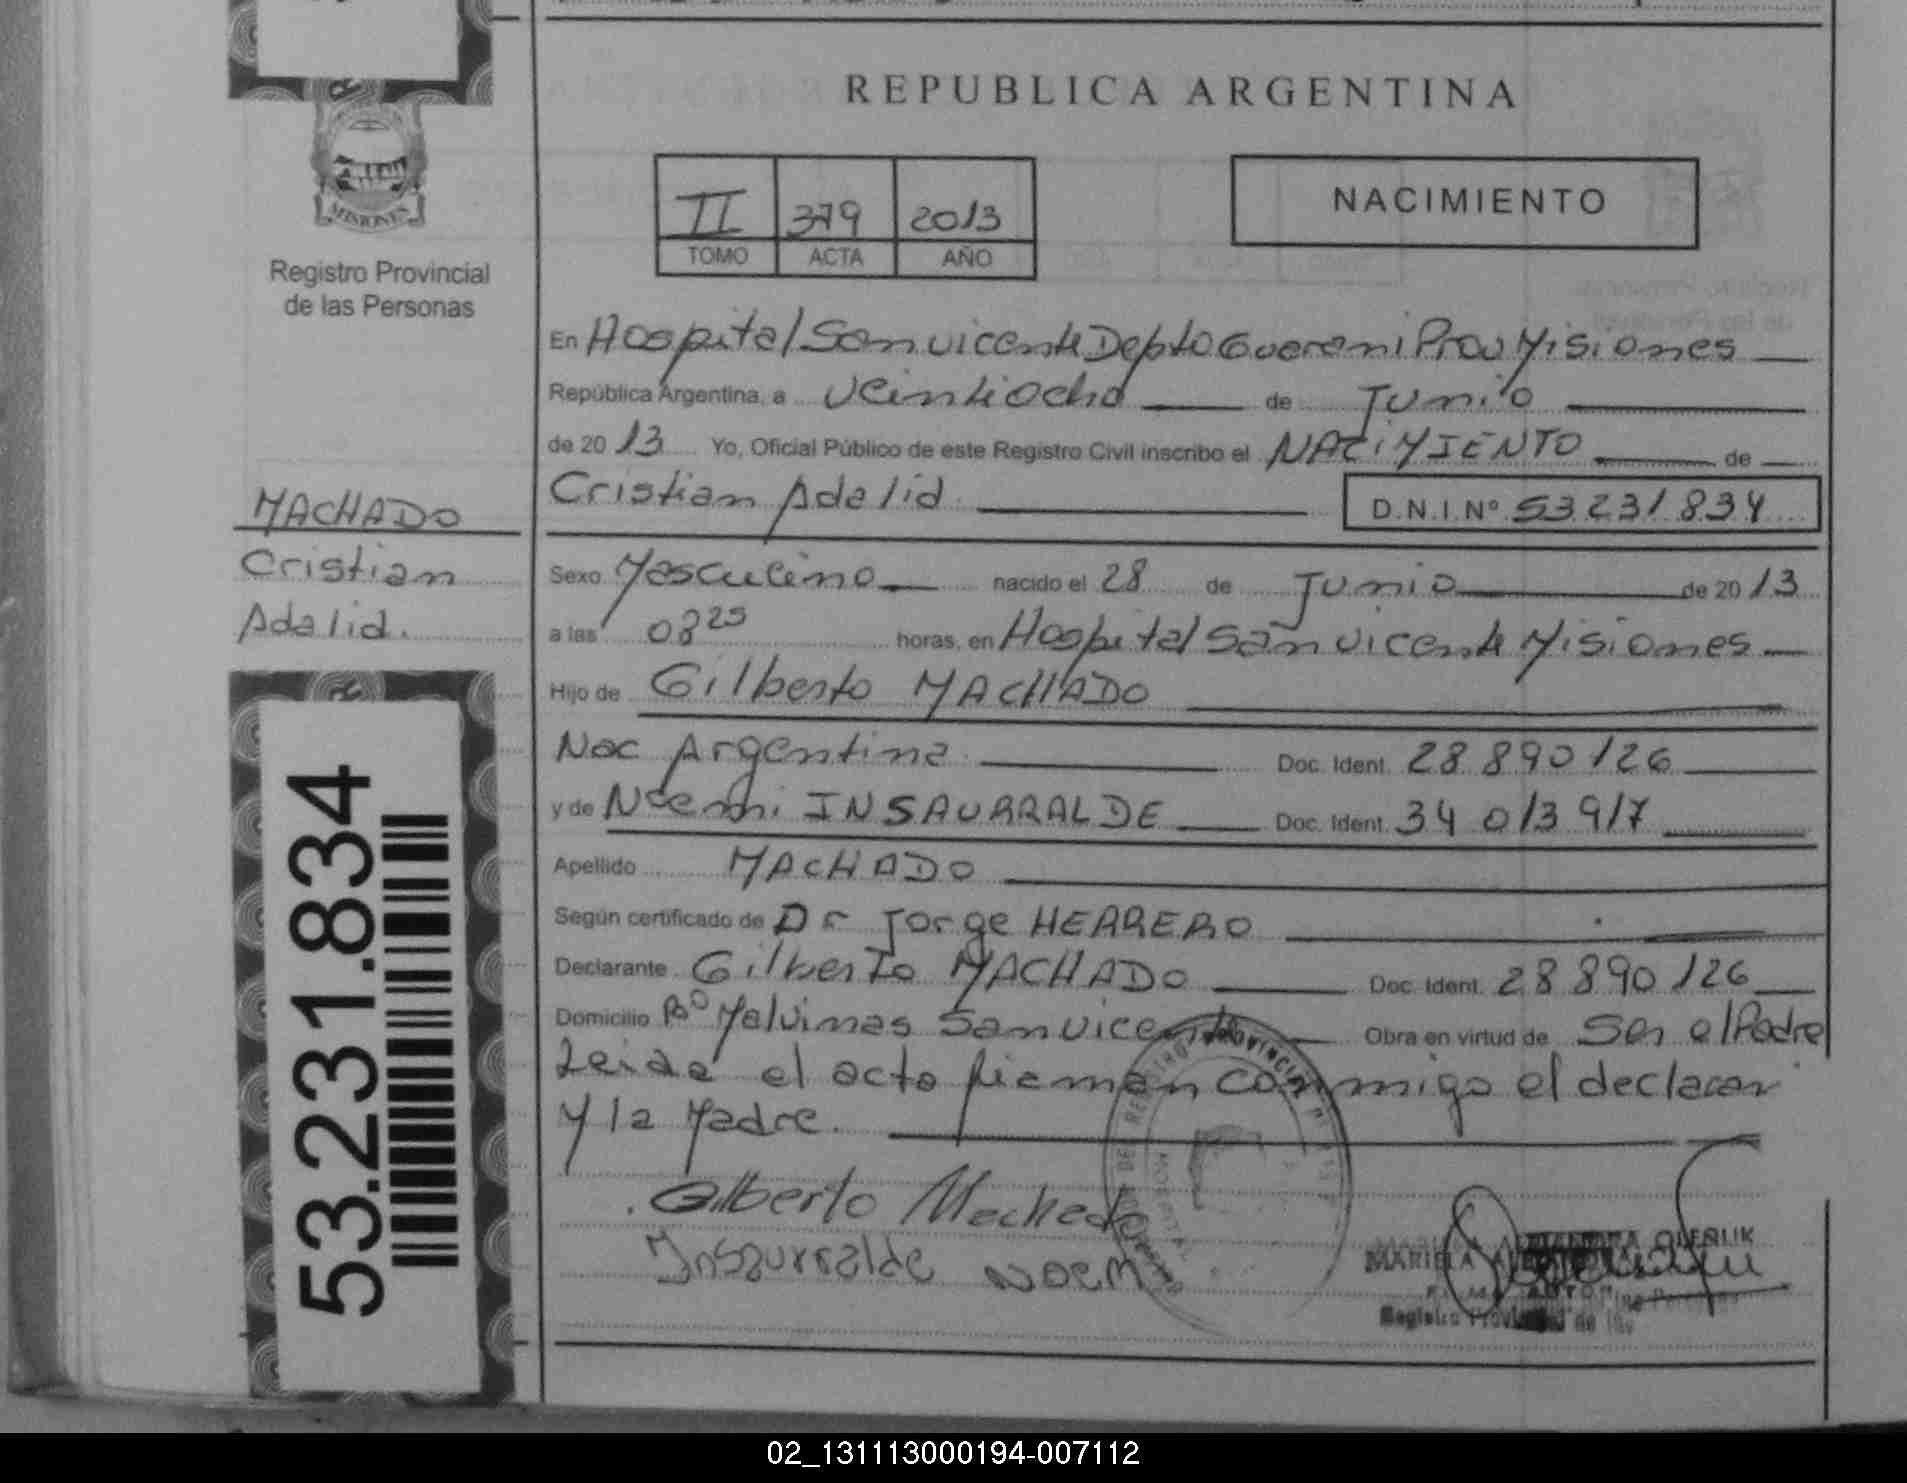 REPUBLICA ARGENTINA
II 379 2013
TOMO ACTA AÑO
NACIMIENTO
MISIONES
Registro Provincial
de las Personas
En Hospital San vicente Depto Guarani Prov Misiones
República Argentina, a veintiocho de Junio
de 20 13 Yo, Oficial Público de este Registro Civil inscribo el NACiMIENTO de
Cristian Adalid D.N.I. Nº 53231834
MACHADO
Cristian
Adalid.
Sexo Masculino nacido el 28 de Junio de 20 13
a las 08 25 horas, en Hospital San vicente Misiones
Hijo de Gilberto MACHADO
Nac Argentina Doc. Ident. 28 890 126
y de Noemi INSAURRALDE Doc. Ident. 34 013 917
Apellido MACHADO
Según certificado de Dr Jorge HERRERO
Declarante Gilberto MACHADO Doc. Ident. 28 890 126
Domicilio Bº Malvinas San vicente Obra en virtud de Ser el Padre
Leida el acta firman conmigo el declaran
y la Madre.
Gilberto Machado
Insaurralde Noemi
MARIELA
Registro Provincial de las
53.231.834
02_131113000194-007112